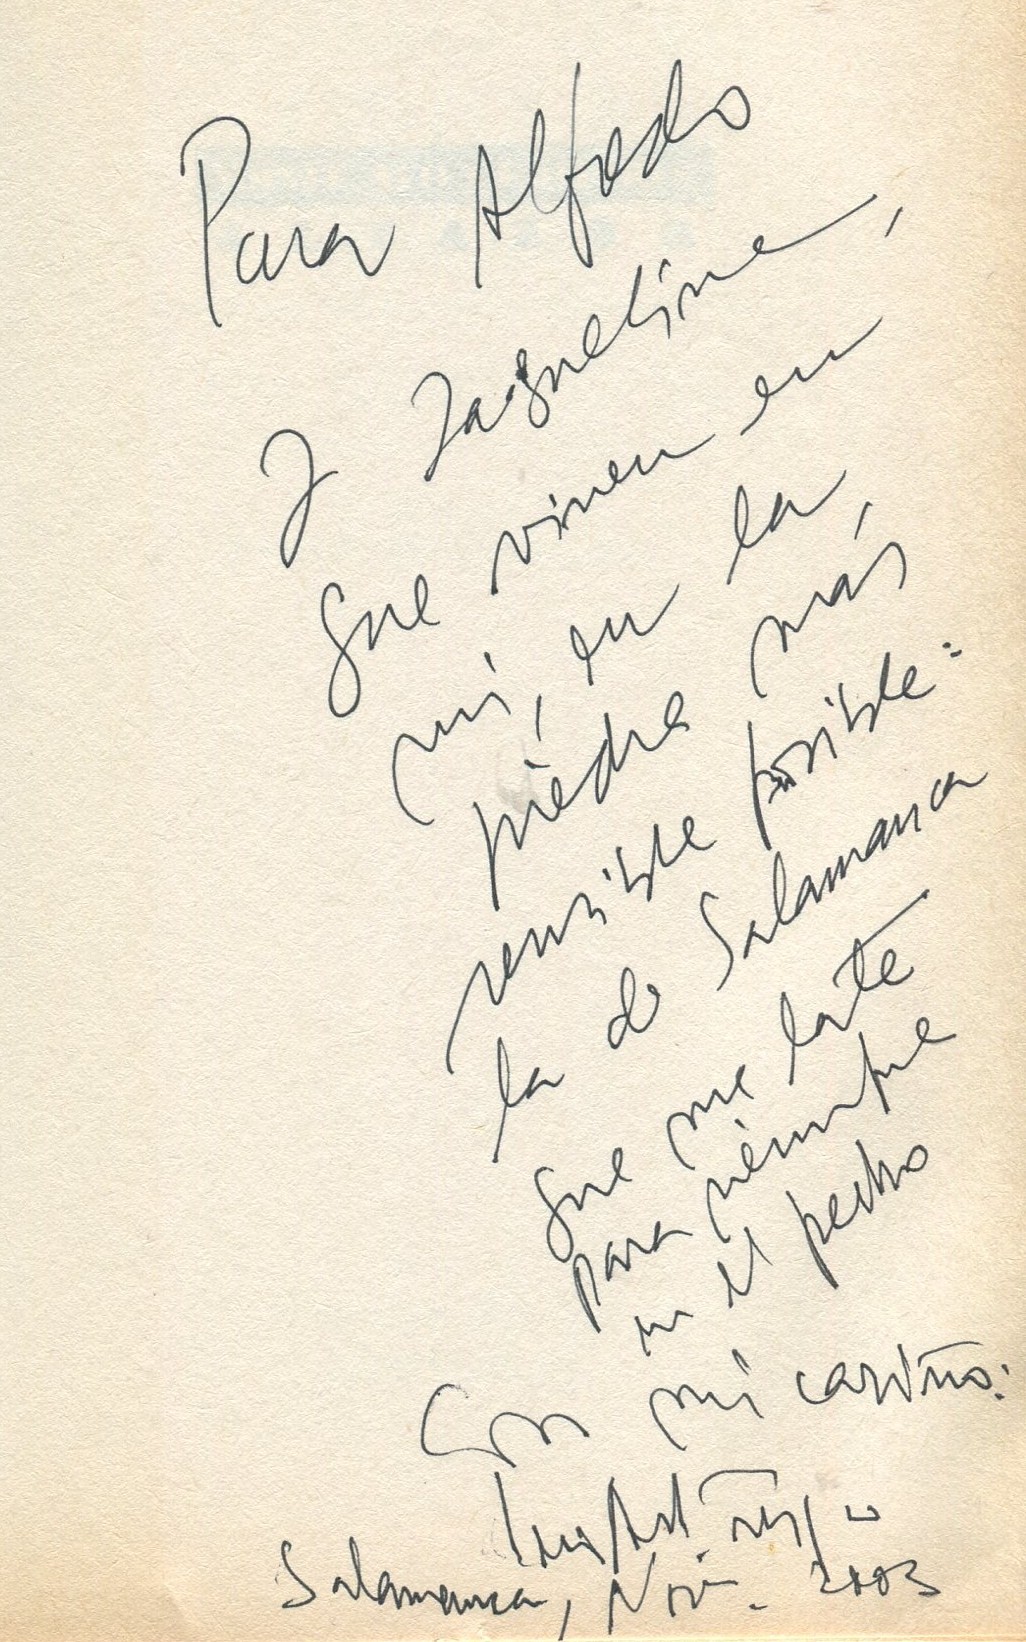 Para Alfredo
y Jaqueline,
que viven en
mí, en la
piedra más
sensible posible:
la de Salamanca
que me late
para siempre
en el pecho
Con mi cariño:
Salamanca, Nov. 2003